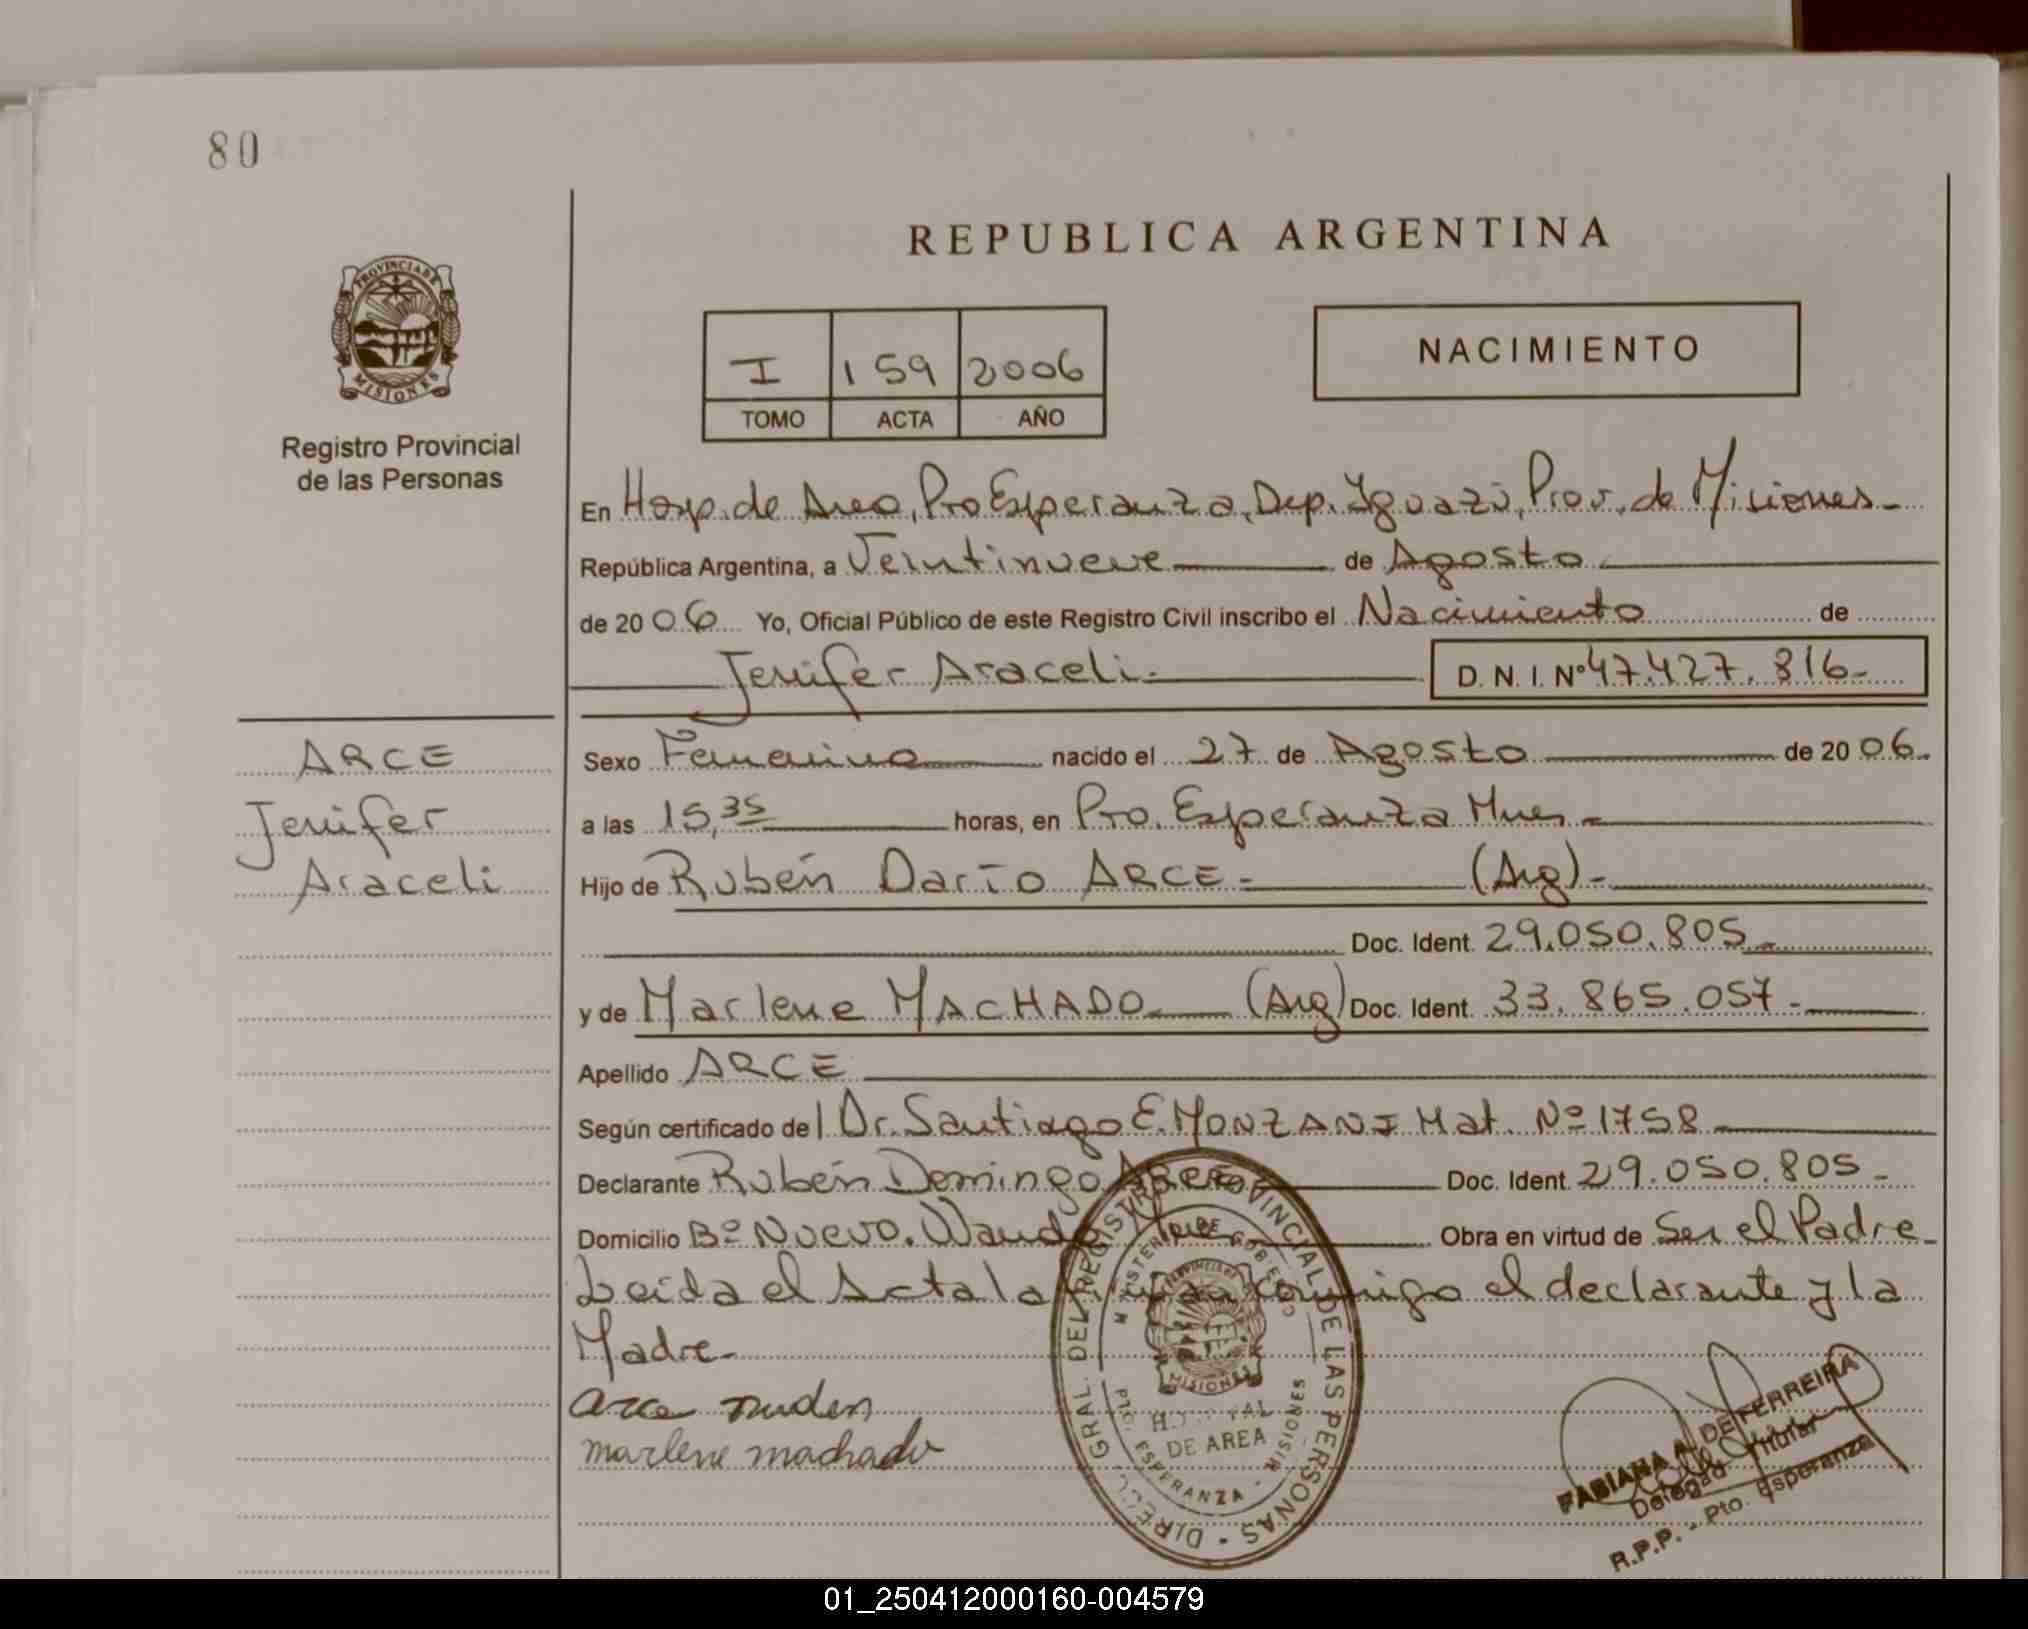 80
REPUBLICA ARGENTINA
PROVINCIA DE MISIONES
Registro Provincial
de las Personas
I 159 2006
TOMO ACTA AÑO
NACIMIENTO
En Hosp. de Area, Pto Esperanza, Dep. Iguazú, Prov. de Misiones
República Argentina, a Veintinueve de Agosto
de 2006 Yo, Oficial Público de este Registro Civil inscribo el Nacimiento de
Jenifer Araceli.
D. N. I. Nº 47.427.816-
ARCE
Jenifer
Araceli
Sexo Femenino nacido el 27 de Agosto de 2006.
a las 15,35 horas, en Pto. Esperanza Mnes
Hijo de Rubén Darío ARCE (Arg)
Doc. Ident. 29.050.805
y de Marlene MACHADO (Arg) Doc. Ident. 33.865.057
Apellido ARCE
Según certificado del Dr. Santiago E. MONZANI Mat. Nº 1758
Declarante Rubén Domingo Arce Doc. Ident. 29.050.805
Domicilio Bº Nuevo. Wanda Mnes Obra en virtud de Ser el Padre
Leida el Acta la conmigo el declarante y la
Madre
arce
marlene machado
DIRECC. GRAL. DEL REGISTRO PROVINCIAL DE LAS PERSONAS
MINISTERIO DE GOBIERNO
PROVINCIA DE MISIONES
HOSPITAL
DE AREA
PTO. ESPERANZA - MISIONES
FABIANA A. DE FERREIRA
Delegad Titular
R.P.P. - Pto. Esperanza
01_250412000160-004579